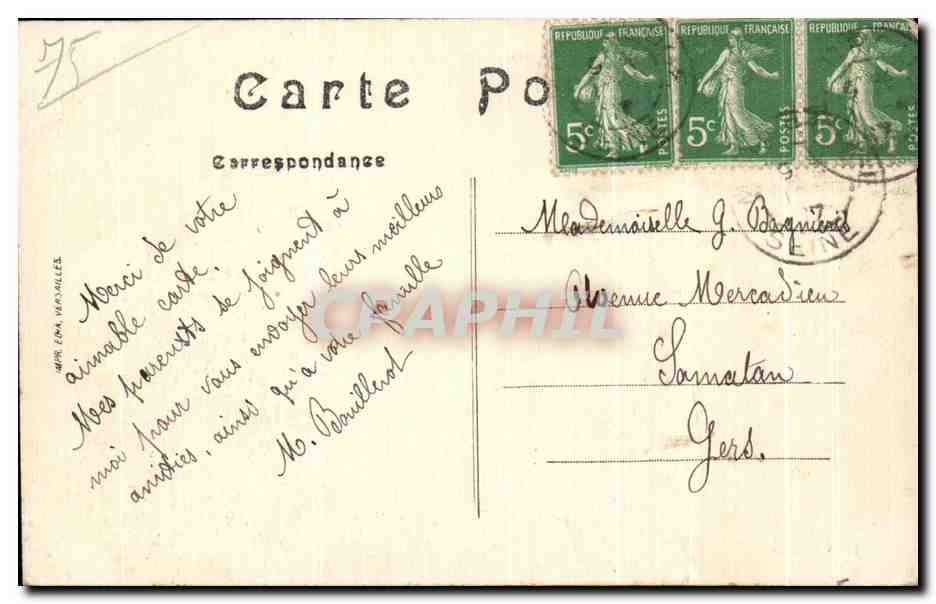 75
Carte Po
REPUBLIQUE FRANÇAISE
5c
POSTES
REPUBLIQUE FRANÇAISE
5c
POSTES
REPUBLIQUE FRANÇAISE
5c
POSTES
Correspondance
SEINE
Merci de votre
aimable carte.
Mes parents se joignent à
moi pour vous envoyer leurs meilleurs
amitiés, ainsi qu'à votre famille
M. Bouillerot
Mademoiselle G. Bagnièris
Avenue Mercadieu
Samatan
Gers.
IMPR. EDIA, VERSAILLES
CPAPHIL